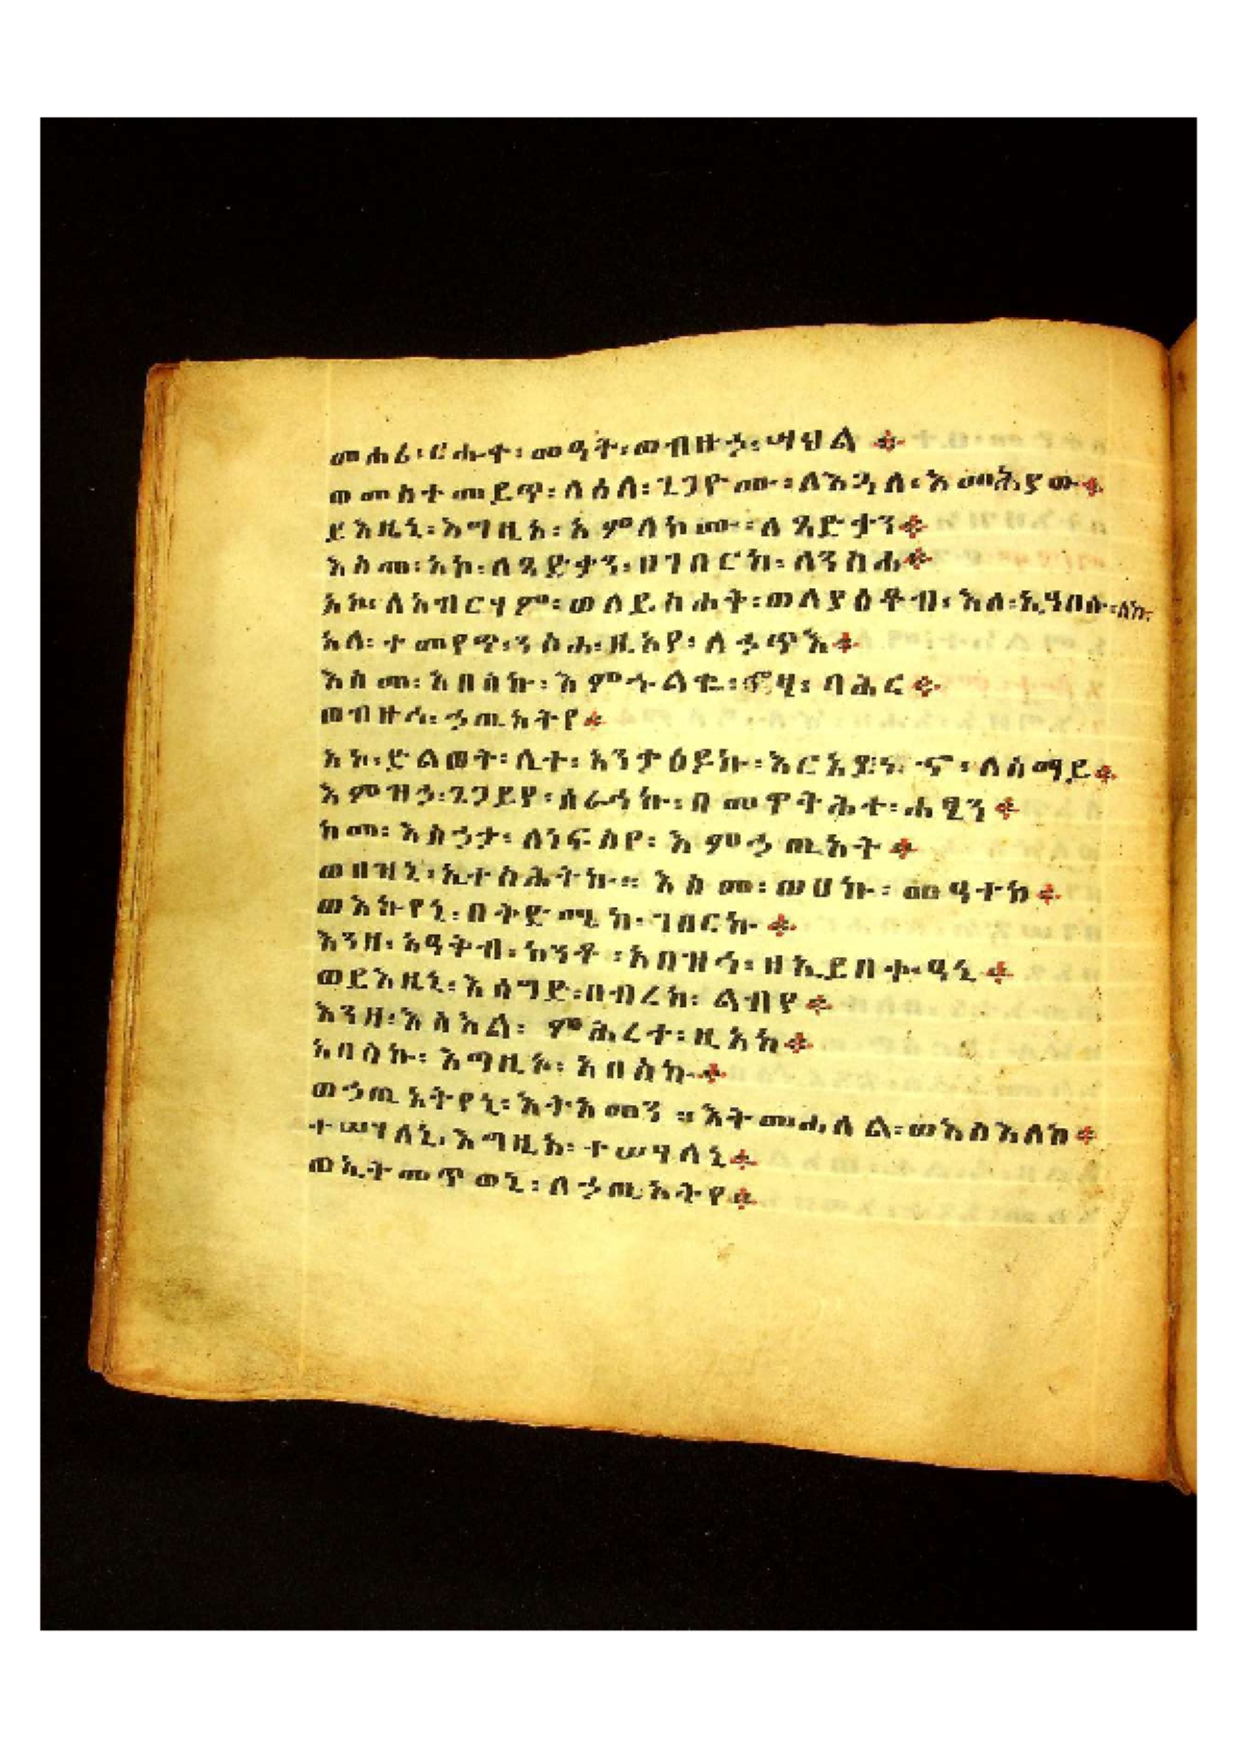 መሐሪ፡ ርሑቀ፡ መዓት፡ ወብዙኃ፡ ሣህል ።
ወመስተመይጥ፡ ለዕለ፡ ጌጋዮሙ፡ ለእጓለ፡ እመሕያው።
ይእዜኒ፡ እግዚአ፡ አምላኮሙ፡ ለጻድቃን።
እስመ፡ አኮ፡ ለጻድቃን፡ ዘገበርክ፡ ለንስሐ።
አኮ፡ ለአብርሃም፡ ወለይስሐቅ፡ ወለያዕቆብ፡ እለ፡ ኢዓበሱ፡ ለከ፡
አላ፡ ተመየጥ፡ ንስሐ፡ ዚአየ፡ ለኃጥእ።
እስመ፡ አበስኩ፡ እምኁልቁ፡ ኆፃ፡ ባሕር።
ወብዙኅ፡ ኃጢአትየ።
አኮ፡ ድልወት፡ ሊተ፡ አንቃዕድኩ፡ እርአይ፡ ለሰማይ።
እምዝኃ፡ ጌጋይየ፡ ሰራኅኩ፡ በመዋትሕተ፡ ሐፂን ።
ከመ፡ እስኃታ፡ ለነፍስየ፡ እምኃጢአት ።
ወበዝኒ፡ ኢተስሕትኩ ። እስመ፡ ወሀኩ፡ መዓተከ ።
ወእኩየኒ፡ በቅድሜከ፡ ገበርኩ ።
እንዘ፡ አዓቅብ፡ ከንቶ፡ አበዝኅ፡ ዘኢይበቍዓኒ ።
ወይእዜኒ፡ እሰግድ፡ በብረከ፡ ልብየ ።
እንዘ፡ እስእል፡ ምሕረተ፡ ዚአከ።
አበስኩ፡ እግዚኦ፡ አበስኩ።
ወኃጢአትየኒ፡ እትአመን ። እትመሐለል፡ ወእስእለከ።
ተሠሃለኒ፡ እግዚአ፡ ተሠሃለኒ።
ወኢትመጥወኒ፡ ለኃጢአትየ።